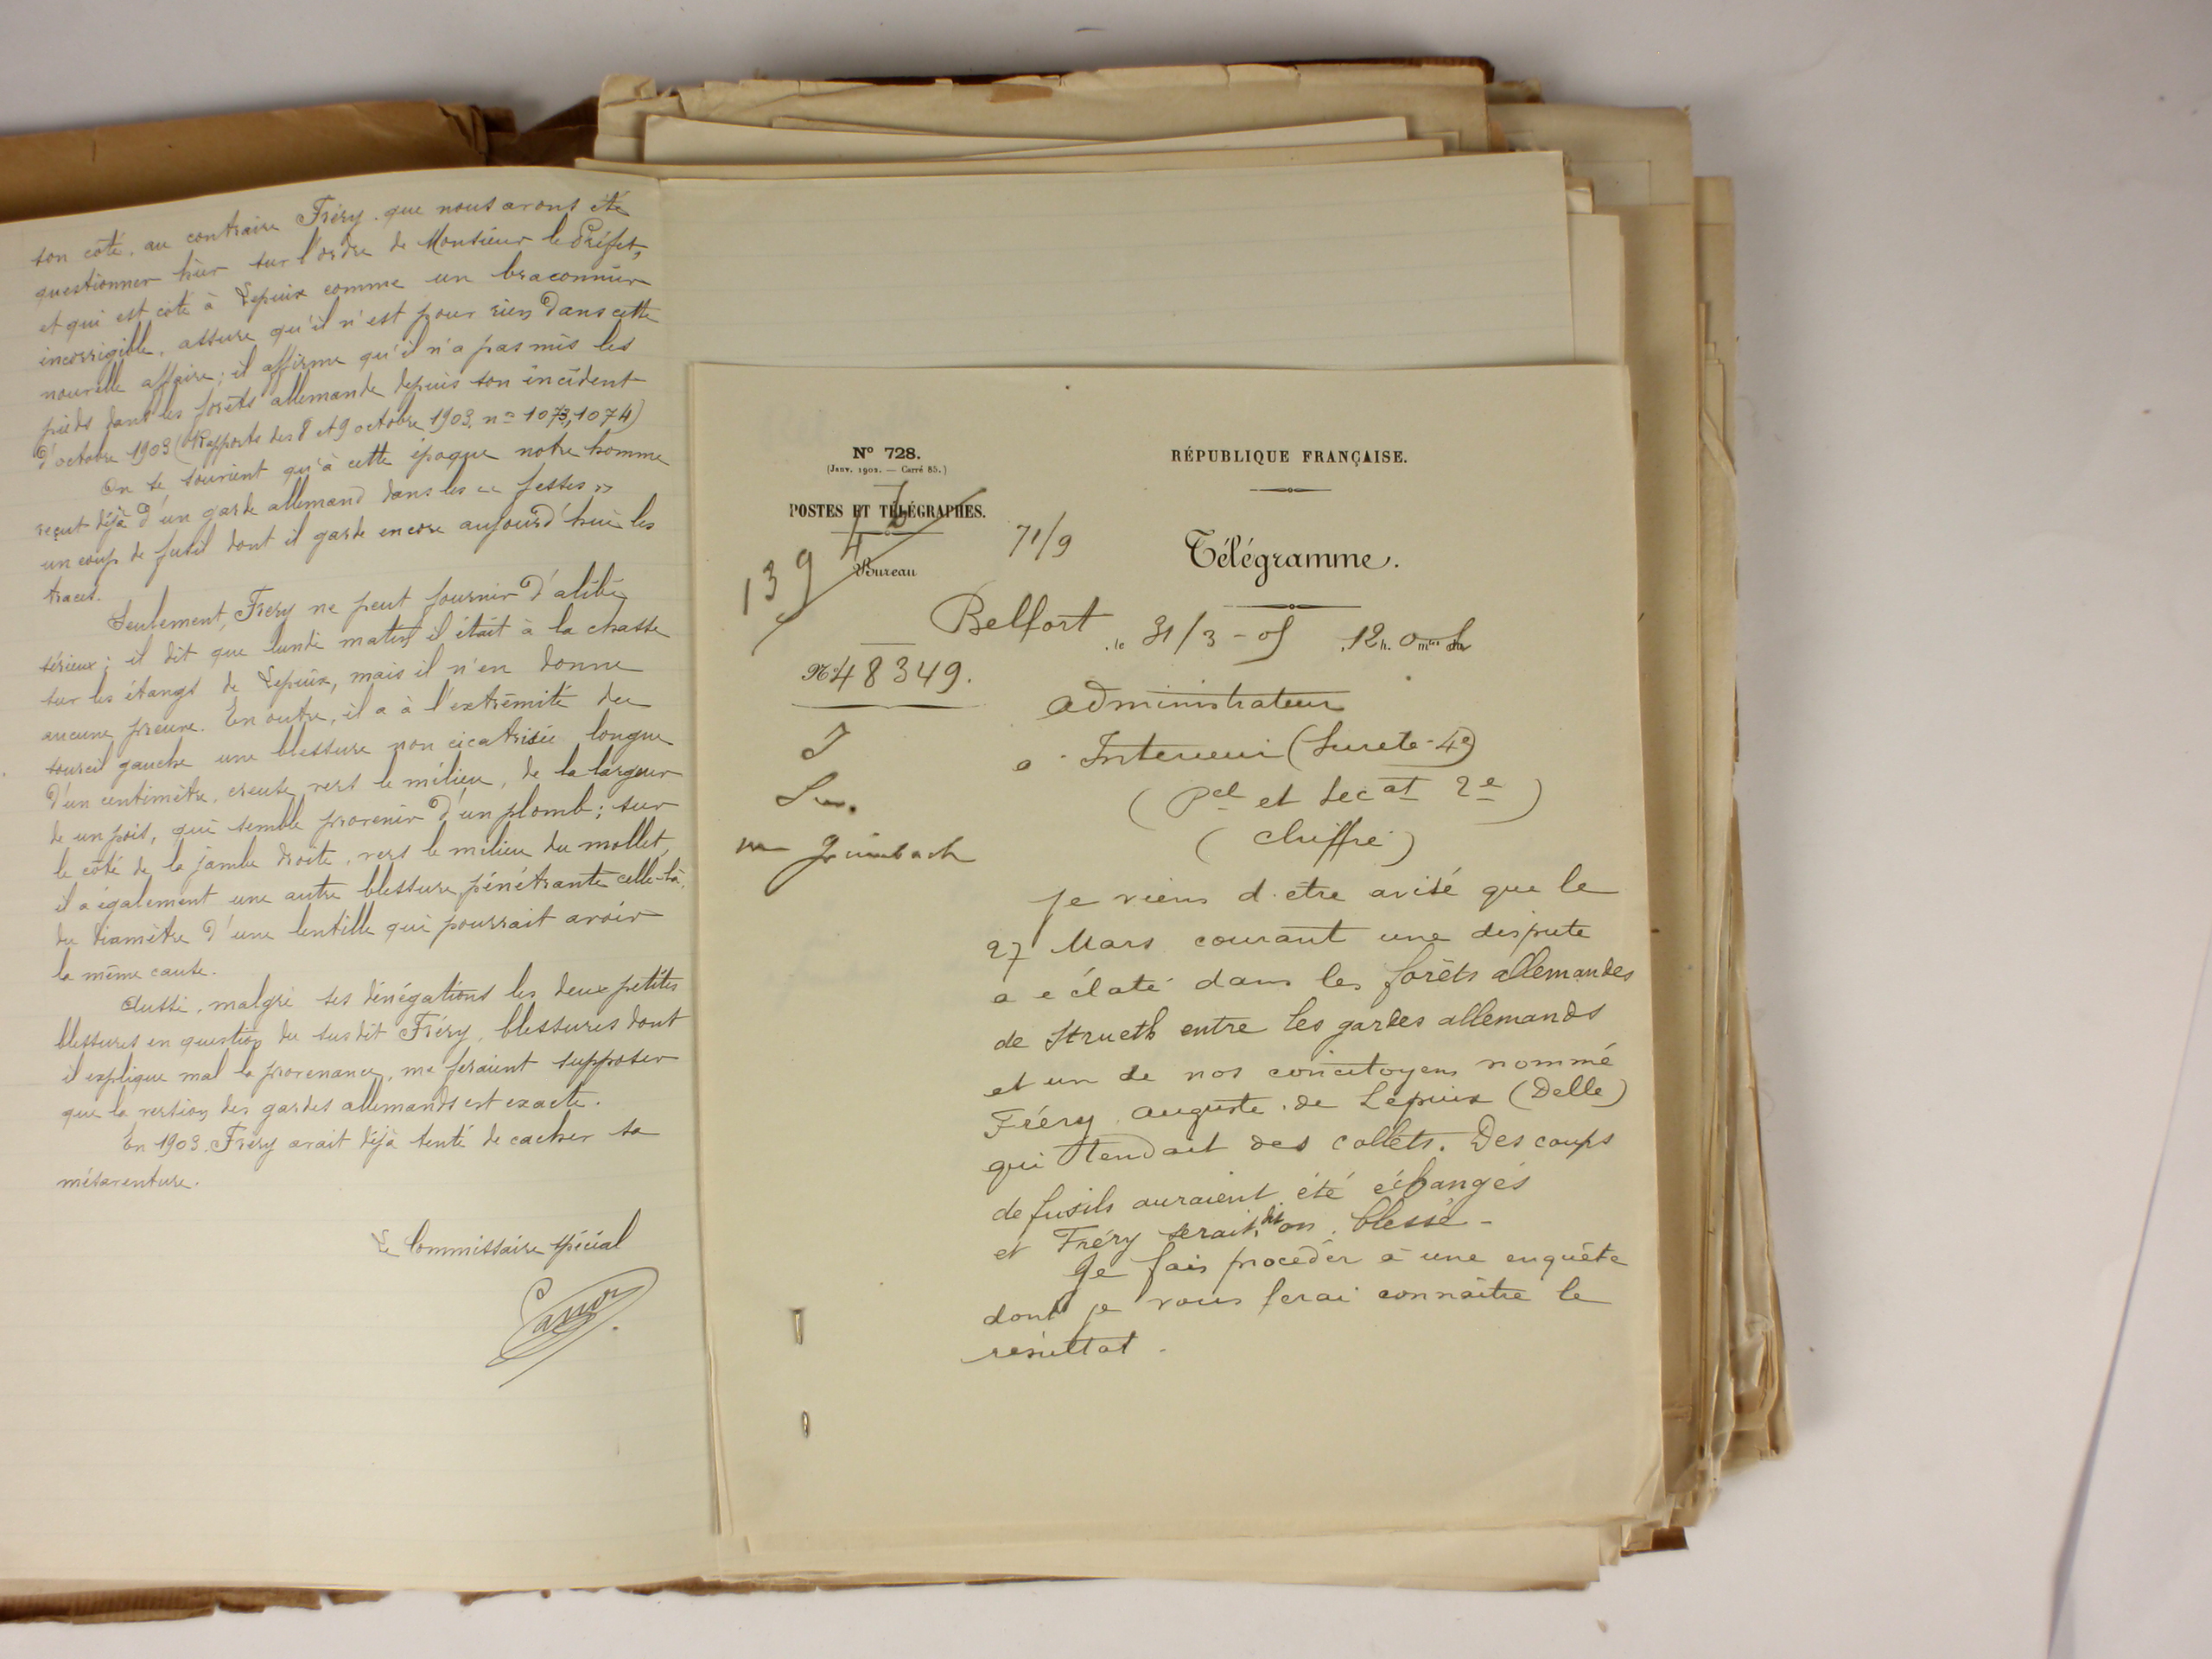 son côté, au contraire Fréry que nous avons été
questionner hier sur l'ordre de Monsieur le Préfet,
et qui est coté à Lepuix comme un braconnier
incorrigible, assure qu'il n'est pour rien dans cette
nouvelle affaire; il affirme qu'il n'a pas mis les
pieds dans les forêts allemandes depuis son incident
d'octobre 1903 (Rapports des 8 et 9 octobre 1903, n° 1073, 1074)
On se souvient qu'à cette époque notre homme
reçut déjà d'un garde allemand dans les « fesses »
un coup de fusil dont il garde encore aujourd'hui les
traces.
Seulement, Fréry ne peut fournir d'alibi
sérieux; il dit que lundi matin il était à la chasse
sur les étangs de Lepuix, mais il n'en donne
aucune preuve. En outre, il a à l'extrémité du
sourcil gauche une blessure non cicatrisée longue
d'un centimètre, creuse vers le milieu, de la largeur
de un pois, qui semble provenir d'un plomb; sur
le côté de la jambe droite, vers le milieu du mollet,
il a également une autre blessure, pénétrante celle-là,
du diamètre d'une lentille qui pourrait avoir
la même cause.
Aussi, malgré ses dénégations les deux petites
blessures en question du susdit Fréry, blessures dont
il explique mal la provenance, me feraient supposer
que la version des gardes allemands est exacte.
En 1903, Fréry avait déjà tenté de cacher sa
mésaventure.
Le Commissaire spécial
N° 728.
(Janv. 1902. — Carré 85.)
RÉPUBLIQUE FRANÇAISE.
POSTES ET TÉLÉGRAPHES.
4
71/9
Télégramme.
139
Bureau
Belfort, le 31/3 - 05 12 h. 0 m
N° 48349.
Administrateur
a Interieur (Surete - 4e)
(Pel et Secat 2e)
(Chiffre)
Je viens d'etre avisé que le
27 Mars courant une dispute
a éclaté dans les forêts allemandes
de Strueth entre les gardes allemands
et un de nos concitoyens nommé
Fréry Auguste de Lepuix (Delle)
qui tendait des collets. Des coups
de fusils auraient été échangés
et Fréry serait, dit on, blessé -
Je fais procéder à une enquête
dont je vous ferai connaître le
résultat -